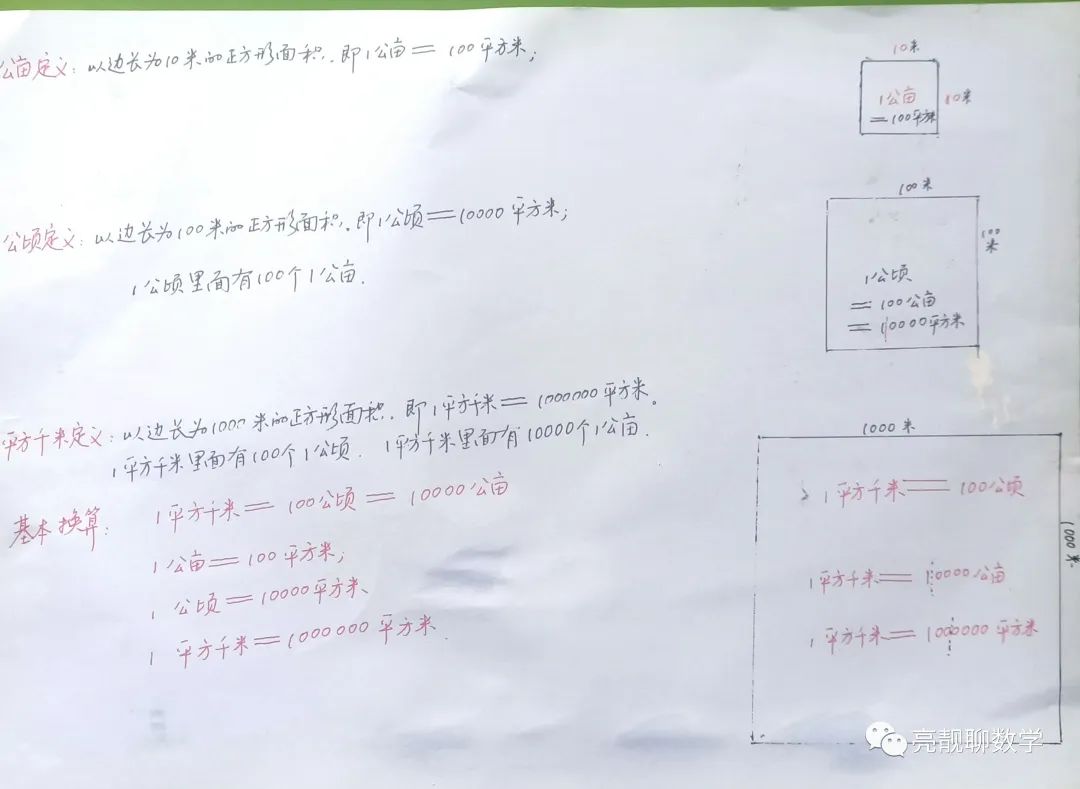 公亩定义：以边长为10米的正方形面积.即1公亩=100平方米；
10米
1公亩
=100平方米
10米
公顷定义：以边长为100米的正方形面积.即1公顷=10000平方米；
1公顷里面有100个1公亩.
100米
100米
1公顷
=100公亩
=10000平方米
平方千米定义：以边长为1000米的正方形面积.即1平方千米=1000000平方米。
1平方千米里面有100个1公顷.1平方千米里面有10000个1公亩.
基本换算：1平方千米=100公顷=10000公亩
1公亩=100平方米；
1公顷=10000平方米
1平方千米=1000000平方米.
1000米
1平方千米=100公顷
1000米
1平方千米=10000公亩
1平方千米=1000000平方米
亮靓聊数学